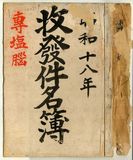 昭和十八年
收發件名簿
專塩腦